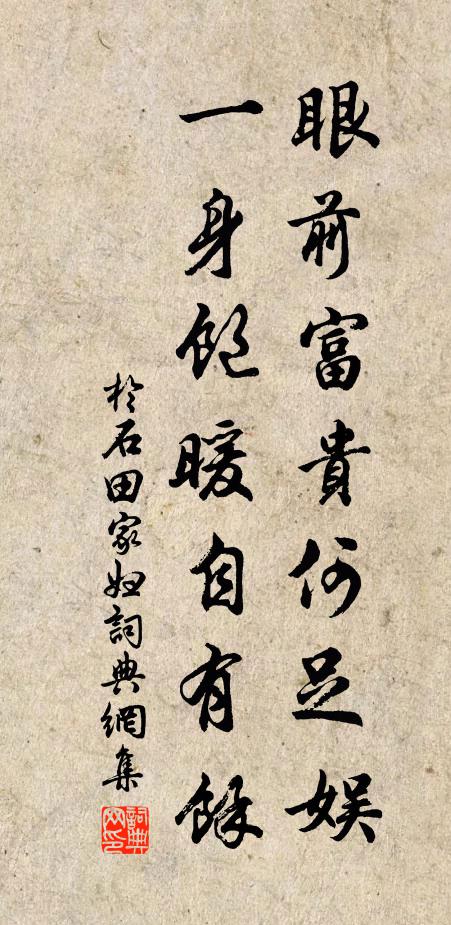 眼前富貴何足娛
一身飽暖自有餘
於石田家婦詞典網集
詞典網印